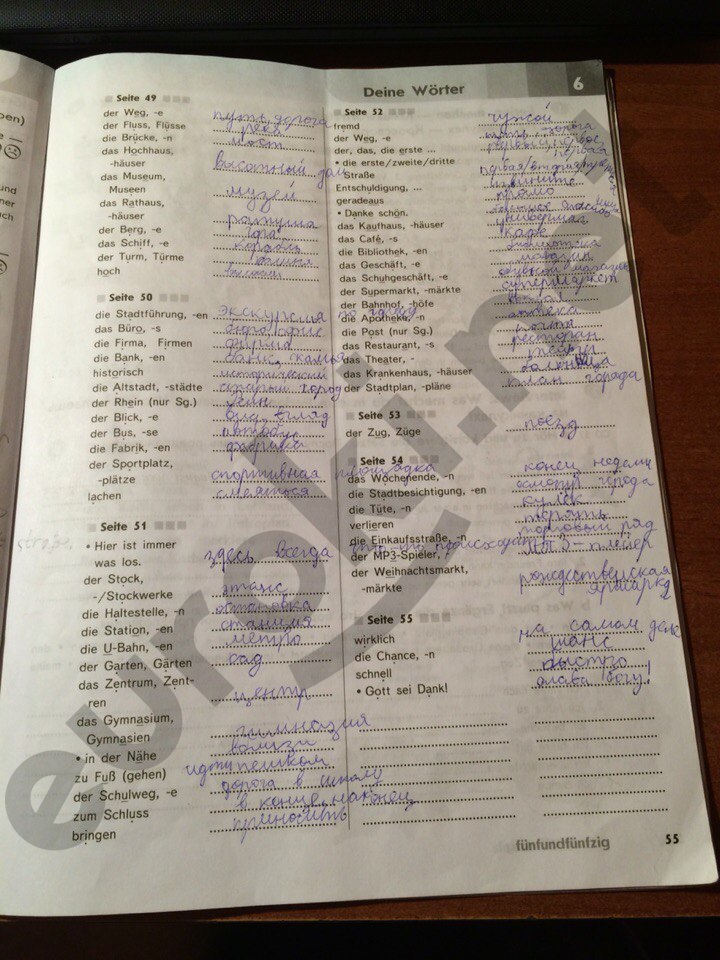 Deine Wörter 6
Seite 49
der Weg, -e путь, дорога
der Fluss, Flüsse река
die Brücke, -n мост
das Hochhaus,
-häuser высотный дом
das Museum,
Museen музей
das Rathaus,
-häuser ратуша
der Berg, -e гора
das Schiff, -e корабль
der Turm, Türme башня
hoch высокий
Seite 50
die Stadtführung, -en экскурсия по городу
das Büro, -s бюро, офис
die Firma, Firmen фирма
die Bank, -en банк, скамья
historisch исторический
die Altstadt, -städte старый город
der Rhein (nur Sg.) Рейн
der Blick, -e вид, взгляд
der Bus, -se автобус
die Fabrik, -en фабрика
der Sportplatz,
-plätze спортивная площадка
lachen смеяться
Seite 51
• Hier ist immer
was los. здесь всегда что-то происходит
der Stock,
-/Stockwerke этаж
die Haltestelle, -n остановка
die Station, -en станция
die U-Bahn, -en метро
der Garten, Gärten сад
das Zentrum, Zent-
ren центр
das Gymnasium,
Gymnasien гимназия
• in der Nähe вблизи
zu Fuß (gehen) идти пешком
der Schulweg, -e дорога в школу
zum Schluss в конце, наконец
bringen приносить
Seite 52
fremd чужой
der Weg, -e путь, дорога
der, das, die erste ... первый, первое, первая
• die erste/zweite/dritte
Straße первая/вторая/третья
Entschuldigung, ... извините
geradeaus прямо
• Danke schön. большое спасибо
das Kaufhaus, -häuser универмаг
das Café, -s кафе
die Bibliothek, -en библиотека
das Geschäft, -e магазин
das Schuhgeschäft, -e обувной магазин
der Supermarkt, -märkte супермаркет
der Bahnhof, -höfe вокзал
die Apotheke, -n аптека
die Post (nur Sg.) почта
das Restaurant, -s ресторан
das Theater, - театр
das Krankenhaus, -häuser больница
der Stadtplan, -pläne план города
Seite 53
der Zug, Züge поезд
Seite 54
das Wochenende, -n конец недели
die Stadtbesichtigung, -en осмотр города
die Tüte, -n кулёк
verlieren терять
die Einkaufsstraße, -n торговый ряд
der MP3-Spieler, - МП3-плеер
der Weihnachtsmarkt,
-märkte рождественская ярмарка
Seite 55
wirklich на самом деле
die Chance, -n шанс
schnell быстро
• Gott sei Dank! слава богу!
fünfundfünfzig 55